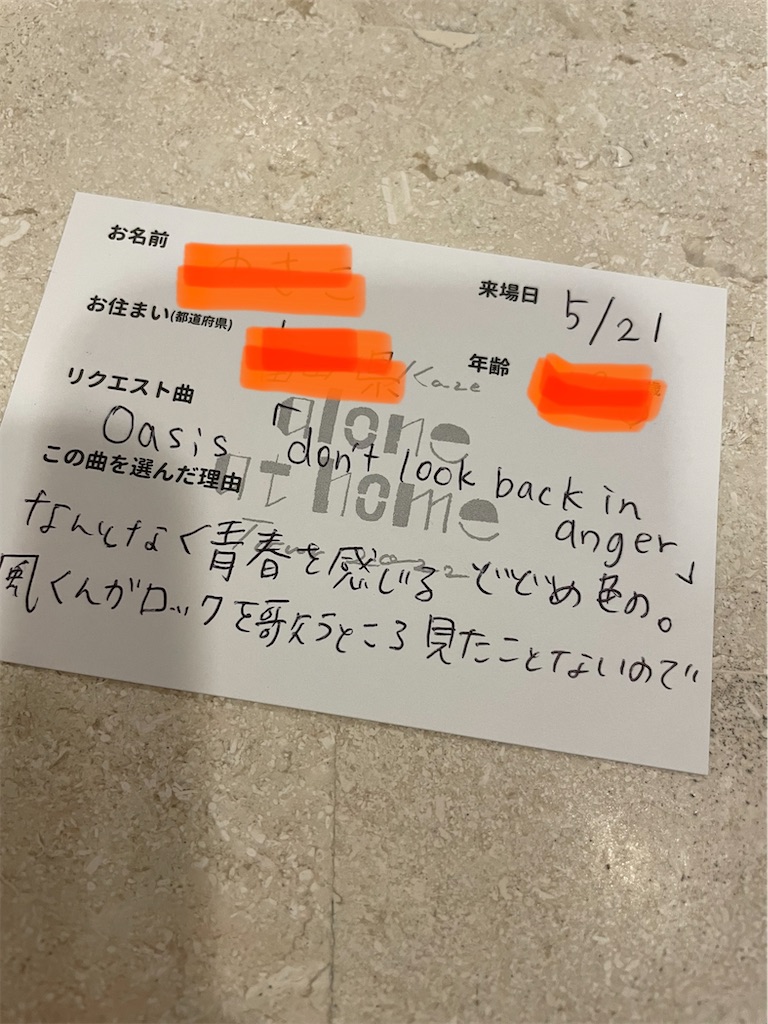 お名前
来場日 5/21
お住まい(都道府県)
年齢
Kaze
リクエスト曲
alone
at home
Oasis 「don't look back in
anger」
この曲を選んだ理由
なんとなく青春を感じる どどめ色の。
風くんがロックを歌うところ見たことないので